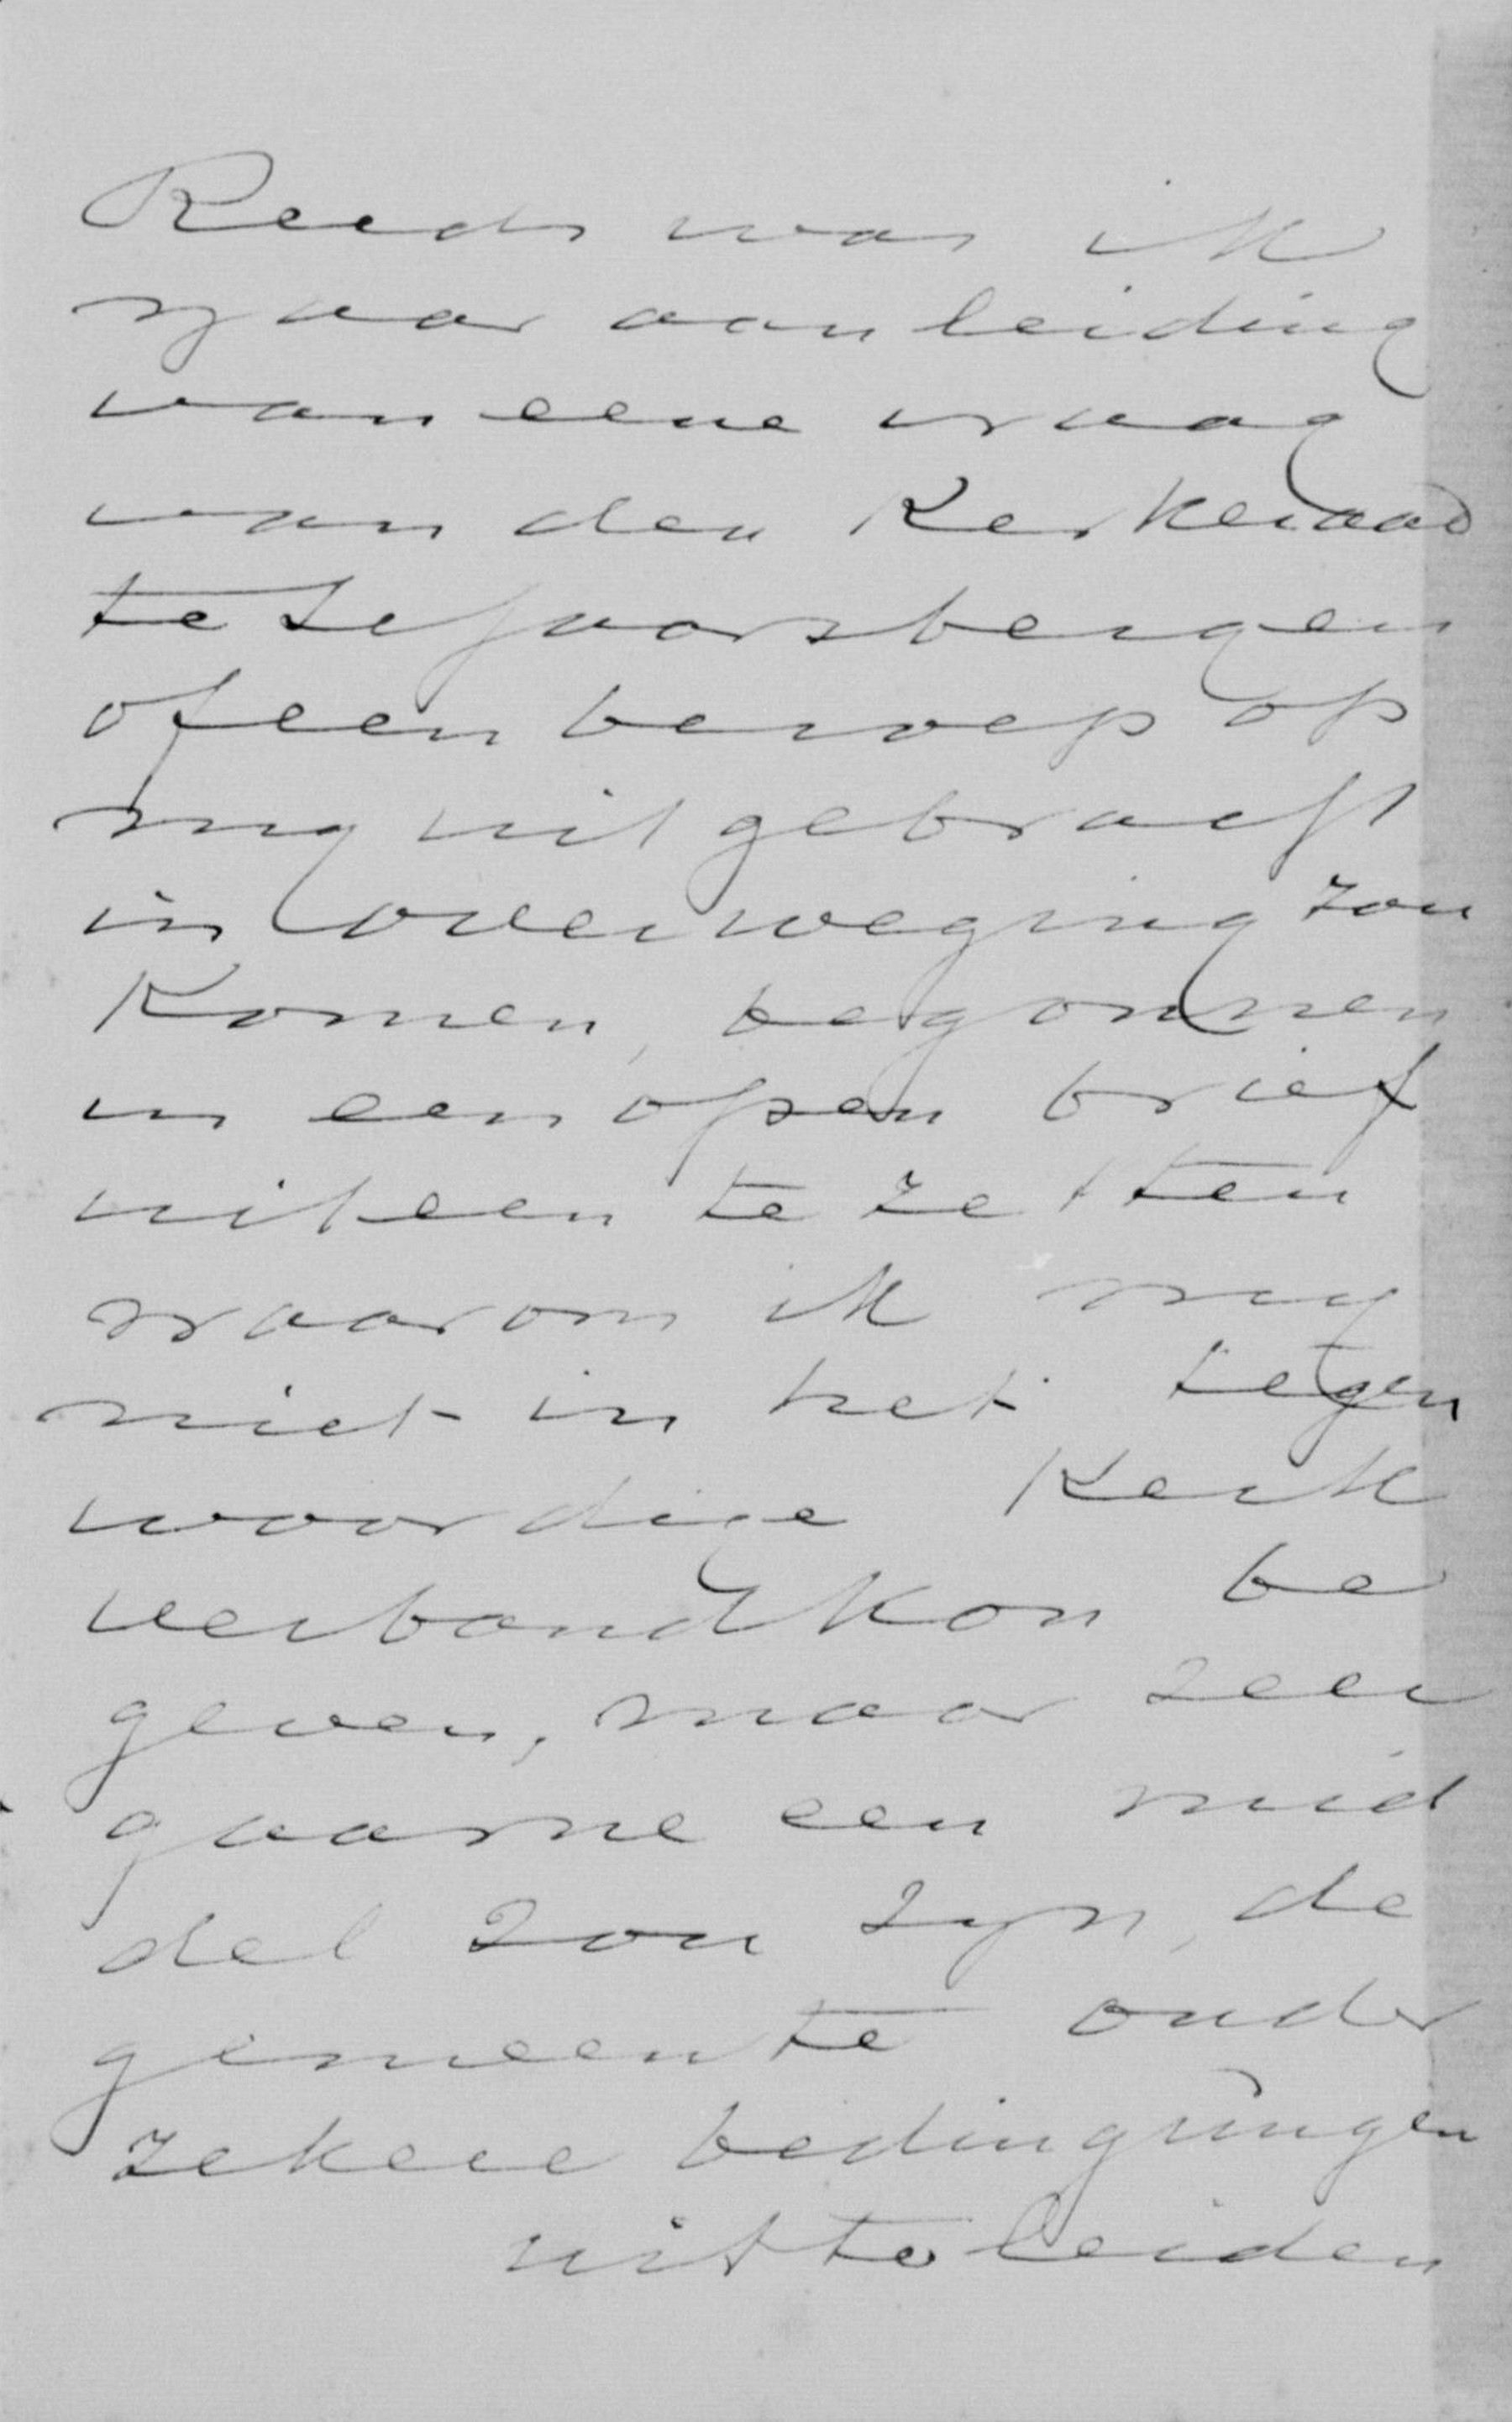 Reeds was ik
naar aanleiding
van eene vraag
van den Kerkeraad
te Scharsbergen
of een beroep op
my uitgebracht
in overweging zou
komen, begonnen
in een open brief
uiteen te zetten
waarom ik my
niet in het tegen
woordige Kerk
verband kon be
geven, maar zeer
gaarne een mid
del zou zyn, de
gemeente onder
zekere bedingingen
uit te leiden